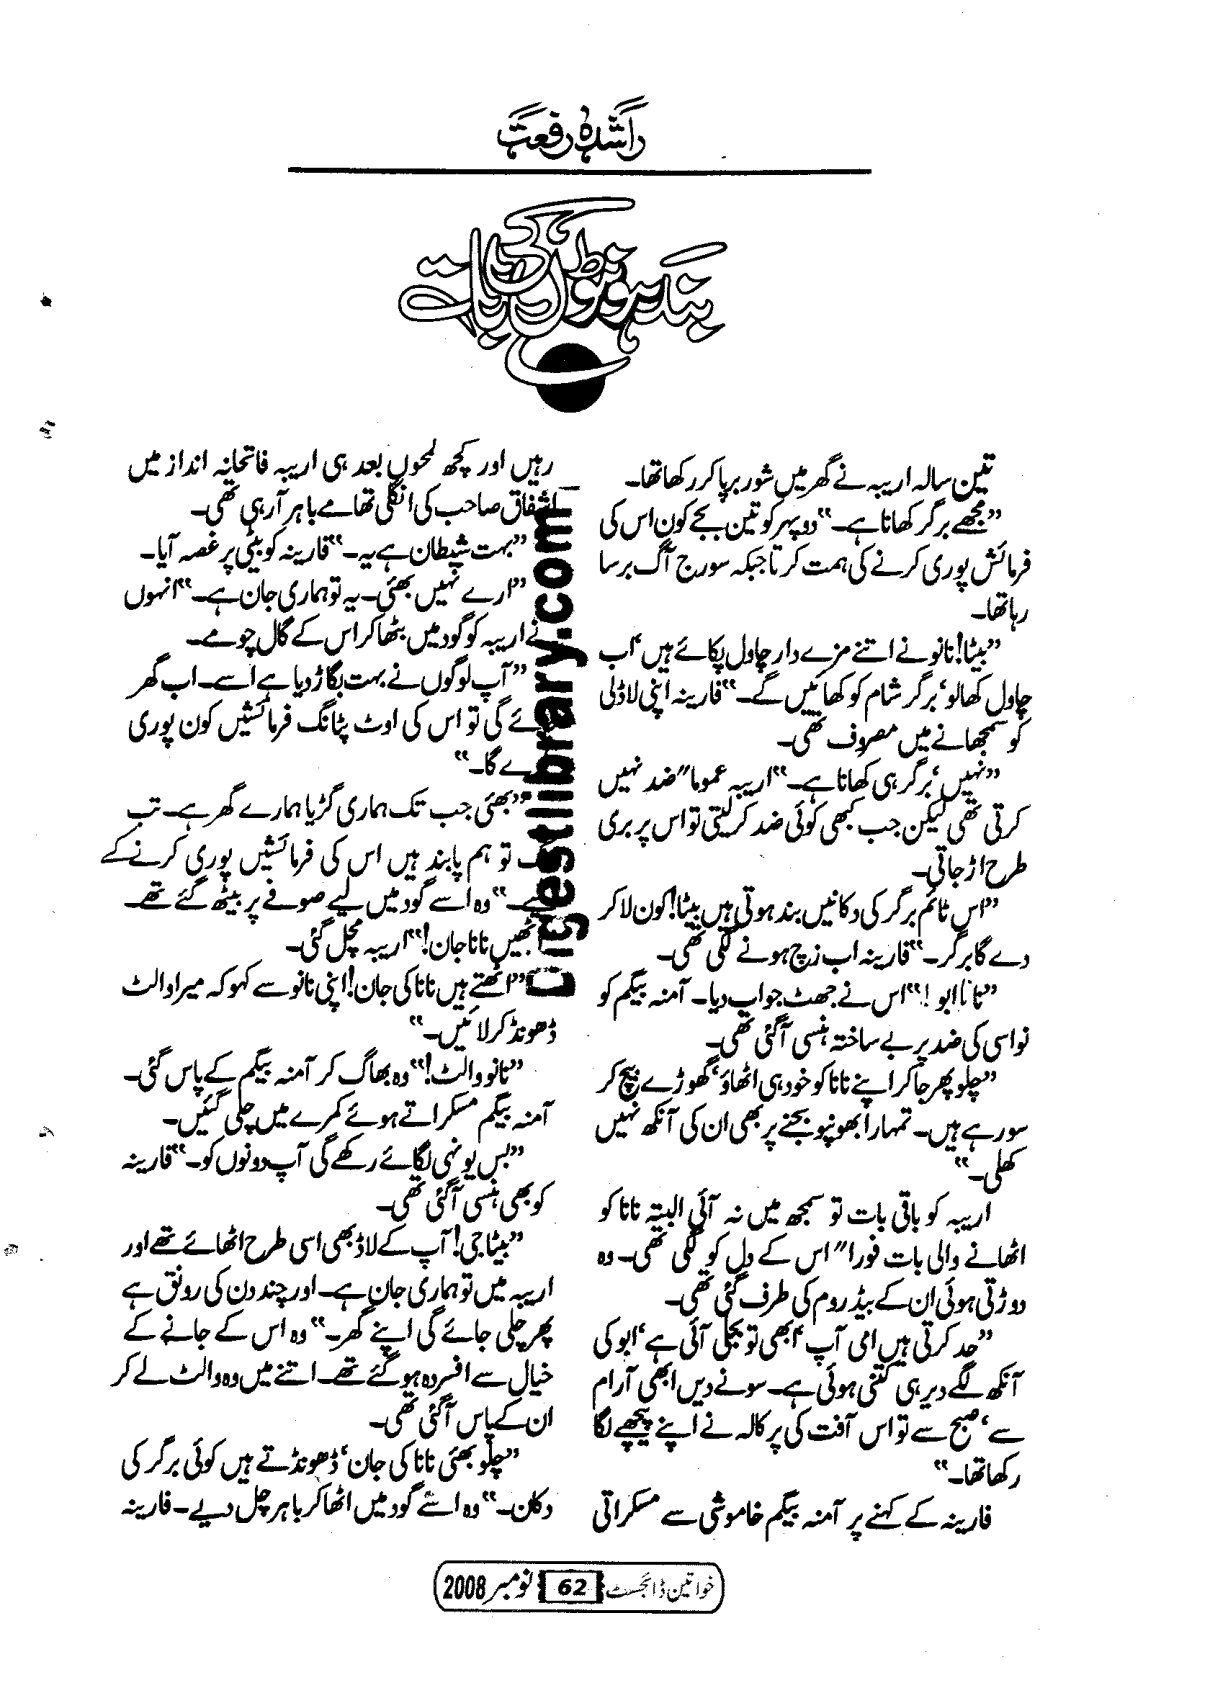 راشدہ رفعت
بند ہونٹوں کی بات
تین سالہ اریبہ نے گھر میں شور برپا کر رکھا تھا۔
”مجھے برگر کھانا ہے۔“ دوپہر کو تین بجے کون اس کی
فرمائش پوری کرنے کی ہمت کرتا جبکہ سورج آگ برسا
رہا تھا۔
”بیٹا! نانو نے اتنے مزے دار چاول پکائے ہیں‘ اب
چاول کھا لو‘ برگر شام کو کھائیں گے۔“ فارینہ اپنی لاڈلی
کو سمجھانے میں مصروف تھی۔
”نہیں‘ برگر ہی کھانا ہے۔“ اریبہ عموما” ضد نہیں
کرتی تھی لیکن جب کبھی کوئی ضد کر لیتی تو اس پر بری
طرح اڑ جاتی۔
”اس ٹائم برگر کی دکانیں بند ہوتی ہیں بیٹا! کون لا کر
دے گا برگر۔“ فارینہ اب زچ ہونے لگی تھی۔
”نانا ابو!“ اس نے جھٹ جواب دیا۔ آمنہ بیگم کو
نواسی کی ضد پر بے ساختہ ہنسی آ گئی تھی۔
”چلو پھر جا کر اپنے نانا کو خود ہی اٹھاؤ‘ گھوڑے بیچ کر
سو رہے ہیں۔ تمہارا بھونپو بجنے پر بھی ان کی آنکھ نہیں
کھلی۔“
اریبہ کو باقی بات تو سمجھ میں نہ آئی البتہ نانا کو
اٹھانے والی بات فورا” اس کے دل کو لگی تھی۔ وہ
دوڑتی ہوئی ان کے بیڈ روم کی طرف گئی تھی۔
”حد کرتی ہیں امی آپ‘ ابھی تو بجلی آئی ہے‘ ابو کی
آنکھ لگے دیر ہی کتنی ہوئی ہے۔ سونے دیں ابھی آرام
سے‘ صبح سے تو اس آفت کی پرکالہ نے اپنے پیچھے لگا
رکھا تھا۔“
فارینہ کے کہنے پر آمنہ بیگم خاموشی سے مسکراتی
رہیں اور کچھ لمحوں بعد ہی اریبہ فاتحانہ انداز میں
اشفاق صاحب کی انگلی تھامے باہر آ رہی تھی۔
”بہت شیطان ہے یہ۔“ فارینہ کو بیٹی پر غصہ آیا۔
”ارے نہیں بھئی۔ یہ تو ہماری جان ہے۔“ انہوں
نے اریبہ کو گود میں بٹھا کر اس کے گال چومے۔
”آپ لوگوں نے بہت بگاڑ دیا ہے اسے۔ اب گھر
ئے گی تو اس کی اوٹ پٹانگ فرمائشیں کون پوری
ے گا۔“
”بھئی جب تک ہماری گڑیا ہمارے گھر ہے۔ تب
ک تو ہم پابند ہیں اس کی فرمائشیں پوری کرنے کے
۔“ وہ اسے گود میں لیے صوفے پر بیٹھ گئے تھے۔
اٹھیں نانا جان!“ اریبہ مچل گئی۔
”اٹھتے ہیں نانا کی جان! اپنی نانو سے کہو کہ میرا والٹ
ڈھونڈ کر لائیں۔“
”نانو والٹ!“ وہ بھاگ کر آمنہ بیگم کے پاس گئی۔
آمنہ بیگم مسکراتے ہوئے کمرے میں چلی گئیں۔
”بس یونہی لگائے رکھے گی آپ دونوں کو۔“ فارینہ
کو بھی ہنسی آ گئی تھی۔
”بیٹا جی! آپ کے لاڈ بھی اسی طرح اٹھائے تھے اور
اریبہ میں تو ہماری جان ہے۔ اور چند دن کی رونق ہے
پھر چلی جائے گی اپنے گھر۔“ وہ اس کے جانے کے
خیال سے افسردہ ہو گئے تھے۔ اتنے میں وہ والٹ لے کر
ان کے پاس آ گئی تھی۔
”چلو بھئی نانا کی جان‘ ڈھونڈتے ہیں کوئی برگر کی
دکان۔“ وہ اسے گود میں اٹھا کر باہر چل دیے۔ فارینہ
Digestlibrary.com
خواتین ڈائجسٹ 62 نومبر 2008